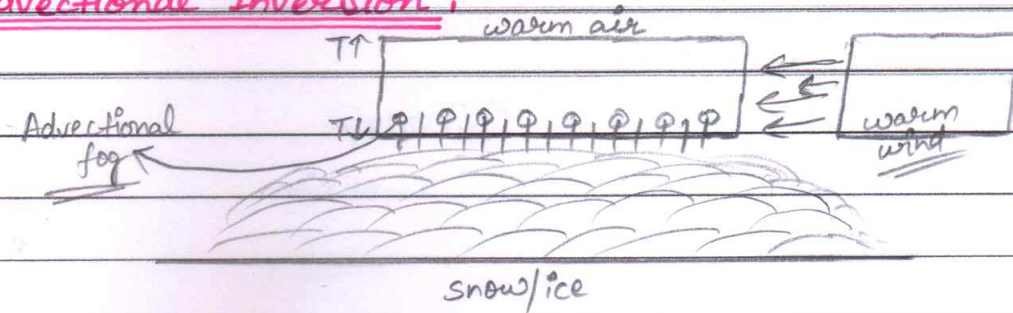 vectional Inversion :
warm air
T↑
Advectional
fog
T↓
warm
wind
snow/ice